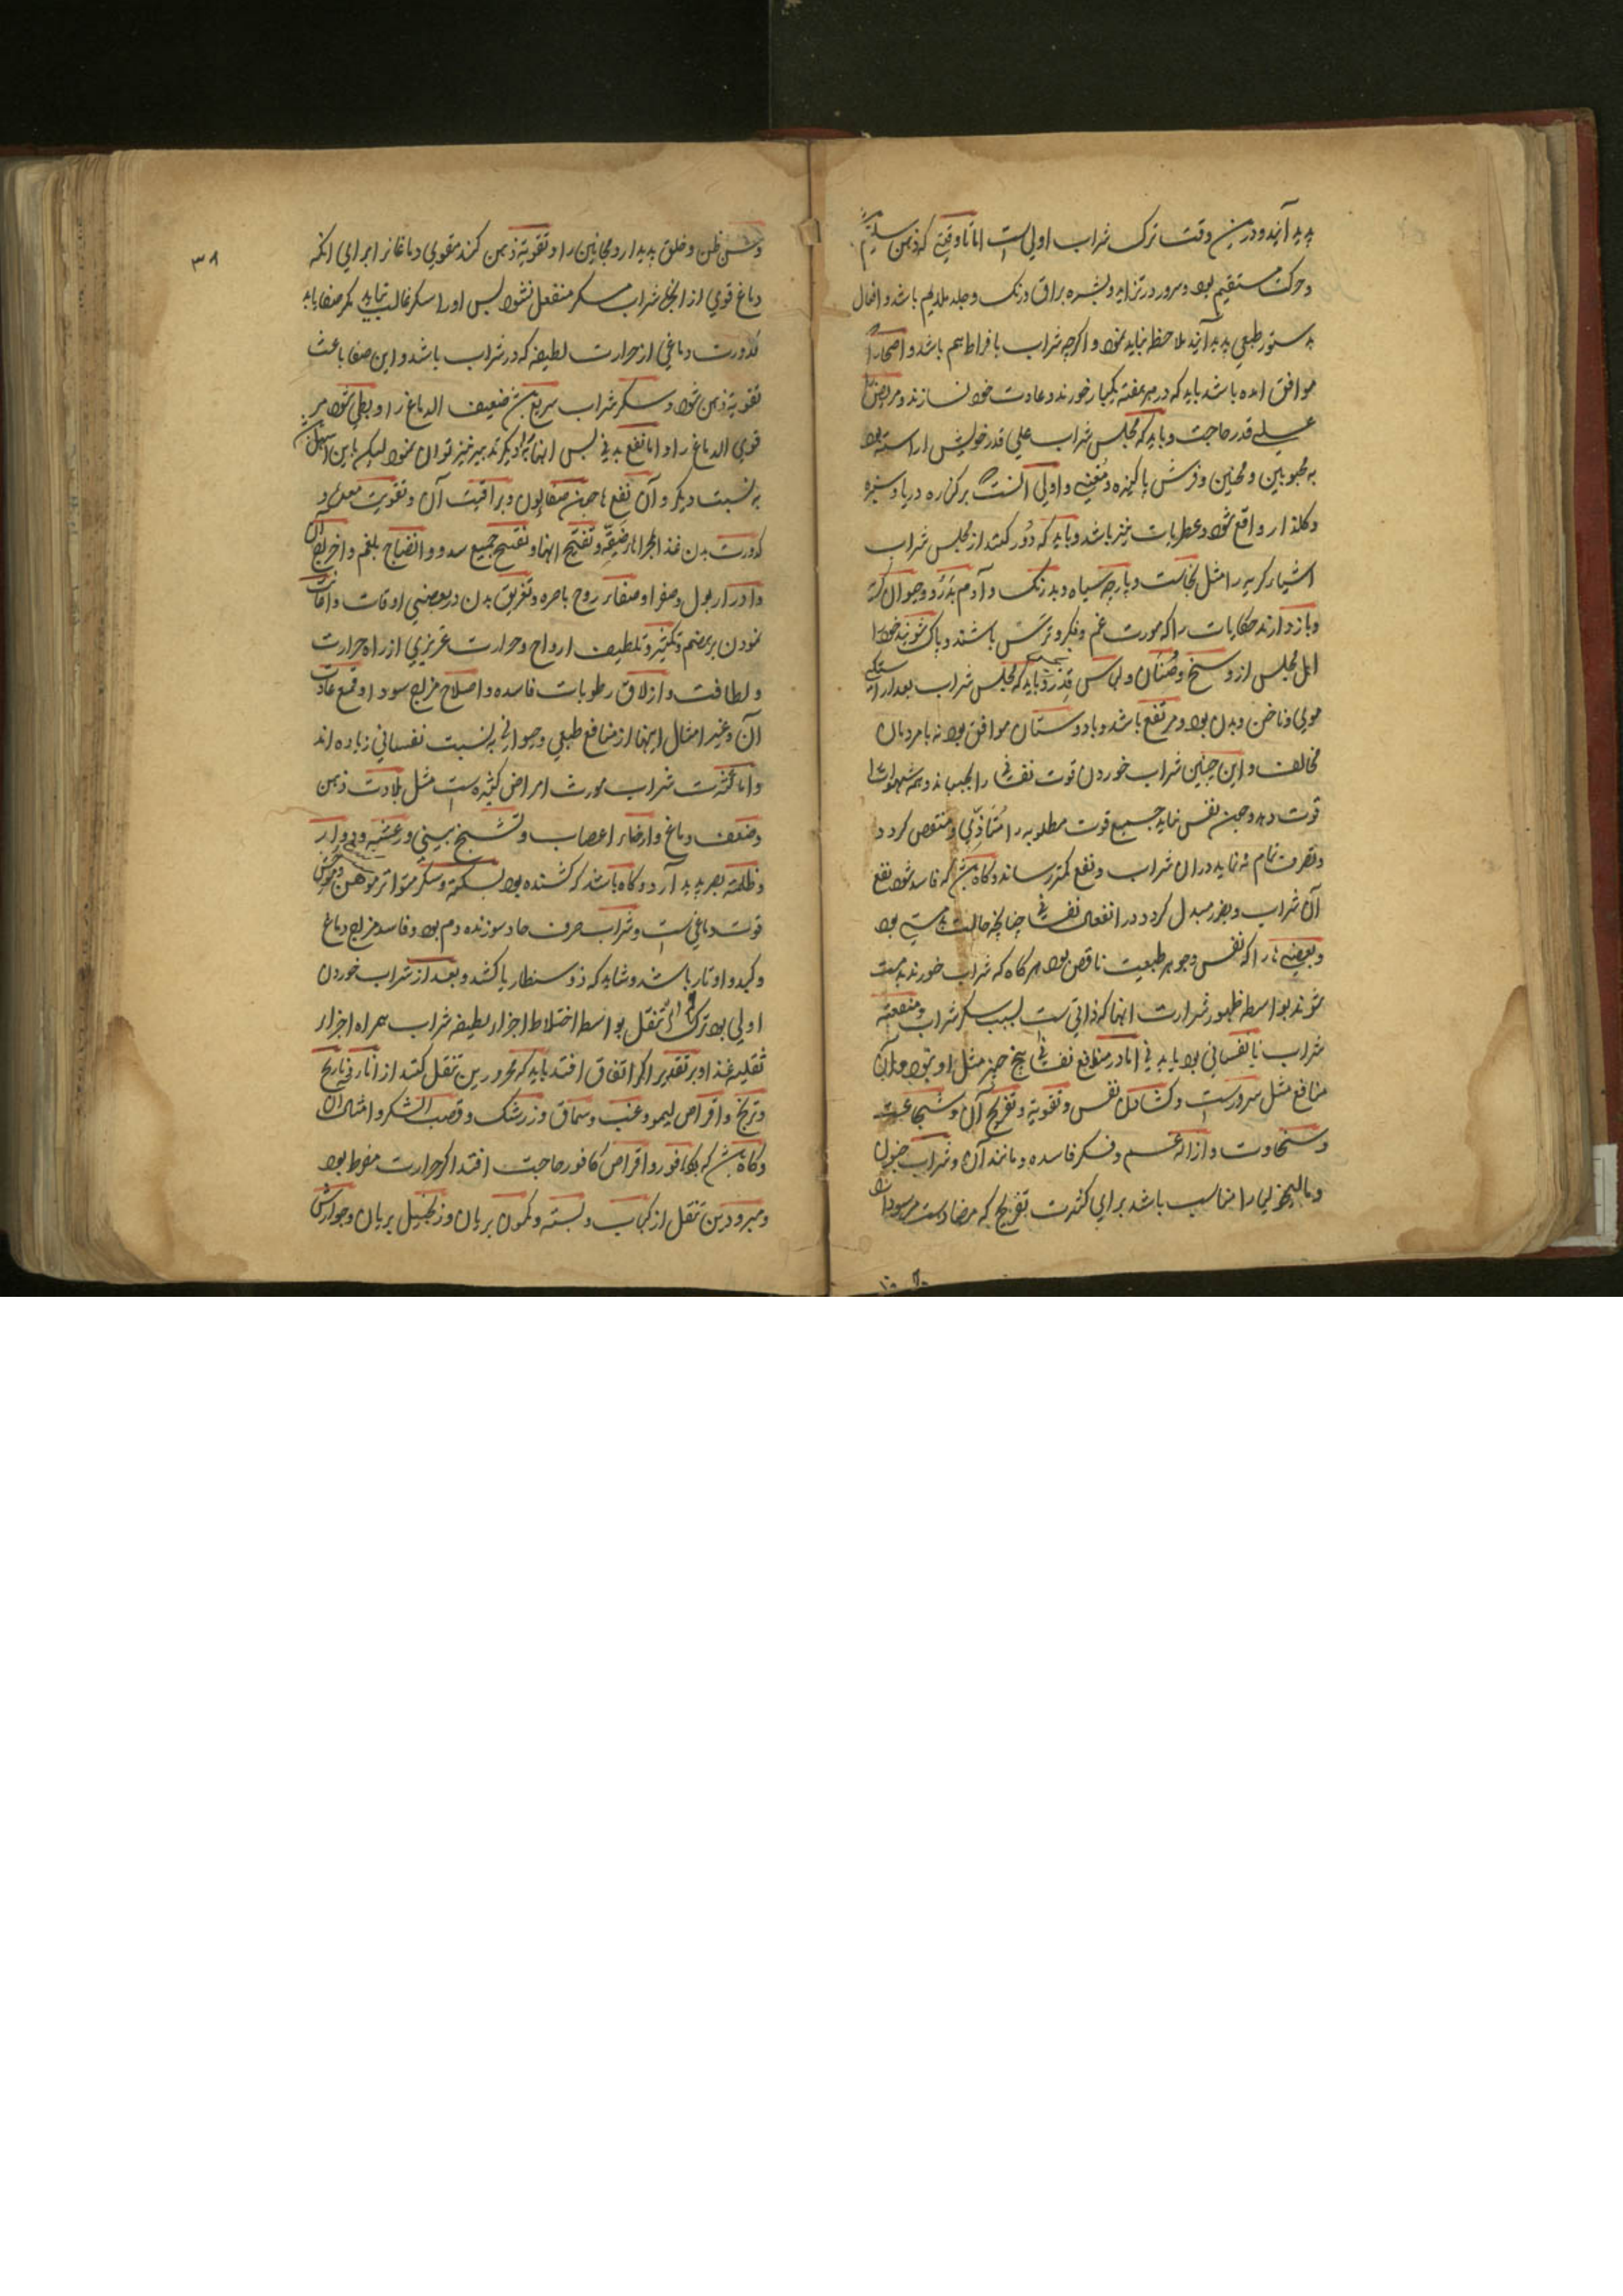 پدید آیند و درین وقت ترک شراب اولی است اما تا وقتی که ذهن سلیم
و حرکت مستقیم بود و سرور در تزاید و بشره براق و رنگ و جلد ملایم باشد و افعال
بدستور طبعی پدید آیند ملاحظه نباید نمود و اگرچه شراب بافراط هم باشد و اصحا را
موافق آمده باشد باید که در هر هفته یکبار خورند و عادت خود نسازند و مریض را
علی قدر حاجت و باید که مجلس شراب علی قدر خویش آراسته بود
به محبوبین و محبین و فرش پاکیزه و مغنی و اولی آنست که برکناره دریا و سبزه
و گلذار واقع شود و عطریات نیز باشد و باید که دور کنند از مجلس شراب
اشیاء کریه را مثل نجاست و پارچه سیاه و بدرنگ و آدم بد رو و حیوان
و باز دارند حکایات را که مورث غم و فکر و ترس باشند و پاک شویند خود را
اهل مجلس از وسخ و صنان و لباس قذر و باید که مجلس شراب بعد آراستگی
موی و ناخن و بدن بود و مرتفع باشد و با دوستان موافق بود نه با مردمان
مخالف و این چنین شراب خوردن قوت نفسانی را بجنباند و همه شهوات را
قوت دهد و چون نفس نماید جمیع قوت مطلوبه را متاذی و منغص گردد
و تصرف تمام نه نماید در آن شراب و نفع کمتر رساند و گاه باشد که فاسد شود نفع
آن شراب و بضرر مبدل گردد در انفعال نفسانی چنانچه حالت بدمستی بود
و بعضی را که نفس و جوهر طبیعت ناقص بود هرگاه که شراب خورند بدمست
شوند بواسطه ظهور شرارت آنها که ذاتی ست بسبب سکر شراب و منفعت
شراب یا نفسانی بود یا بدنی اما در منافع نفسانی هیچ چیز مثل او نبود و آن
منافع مثل سرورست و کشادن نفس و تقویة و تفریح آن و شجاعت
و سخاوت و ازاله غم و فکر فاسده و مانند آن و شراب جنون
و مالیخولیا را مناسب باشد برای کثرت تفریح که مضادست مر سودا را
۳۸
و حسن ظن و خلق پدید آرد و مجانین را و تقویة ذهن کند مقوی دماغان را برای آنکه
دماغ قوی از ابخره شراب مسکر منفعل نشود پس او را سکر غالب نیاید مگر صفا یابد
کدورت دماغی از حرارت لطیفه که در شراب باشد و این صفا باعث
تقویة ذهن شود و سکر شراب سریع باشد ضعیف الدماغ را و بطی شود مر
قوی الدماغ را و اما نفع بدنی پس آنها به دیگر تدبیر نیز توان نمود لیکن باین آسانی
به نسبت دیگر و آن نفع ها حسن صفا لون و براقیت آن و تقویت معده و
کدورت بدن غذا مجرا ضیقه و تفتح آنها و تفتیح جمیع سدد و انضاج بلغم و اخراج آن
و ادرار بول و صفرا و صفاء روح باصره و تعریق بدن در بعضی اوقات و اعانت
نمودن بر هضم و تکثیر و تلطیف ارواح و حرارت غریزی از راه حرارت
و لطافت و ازلاق رطوبات فاسده و اصلاح مزاج سودا و قمع عادت
آن و غیر امثال اینها از منافع طبعی و حیوانی به نسبت نفسانی زیاده اند
و اما کثرت شراب مورث امراض کثیره ست مثل بلادت ذهن
و ضعف دماغ و ارخاء اعصاب و تشنج بینی و رعشه و دوار
و ظلمة بصر پدید آرد و گاه باشد که کشنده بود بسکته و سکر متواتر موهن
قوت دماغی ست و شراب صرف حاد سوزنده دم بود و فاسد مزاج دماغ
و کبد و اوتار باشد و شاید که ذوسنطاریا کشد و بعد از شراب خوردن
اولی بود ترک تنقل بواسطه اختلاط اجزاء لطیفه شراب همراه اجزاء
ثقلیه غذا و بر تقدیر اگر اتفاق افتد باید که محرورین تنقل کنند از انار و نارنج
و ترنج و اقراص لیمو و عنب و سماق و زرشک و قصب السکر و امثال آن
و گاه باشد که بکافور و اقراص کافور حاجت افتد اگر حرارت مفرط بود
و مبرودین تنقل از کباب و پسته و کمون بریان و زنجبیل بریان و جوارش